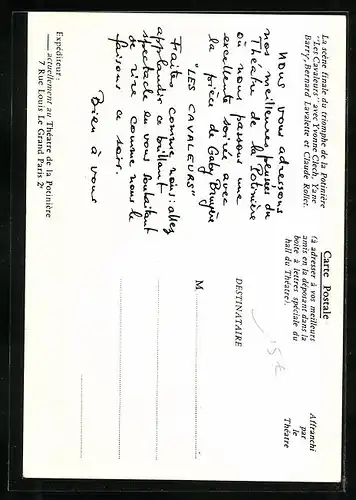 La scène finale du triomphe de la Potinière
"Les Cavaleurs" avec Yvonne Clech, Yane
Barry, Bernard Lavalette et Claude Rollet.
Nous vous adressons
nos meilleures pensées du
Théatre de la Potinière
où nous passons une
excellente soirée avec
la pièce de Gaby Bruyère
"LES CAVALEURS"
Faites comme nous: allez
applaudir ce brillant
spectacle en vous souhaitant
de rire comme nous le
faisons ce soir.
Bien à vous
Expéditeur:
actuellement au Théatre de la Potinière
7 Rue Louis Le Grand Paris 2e
Carte Postale
(à adresser à vos meilleurs
amis en la déposant dans la
boîte à lettres spéciale du
hall du Théatre).
Affranchi
par
le
Théatre
DESTINATAIRE
M